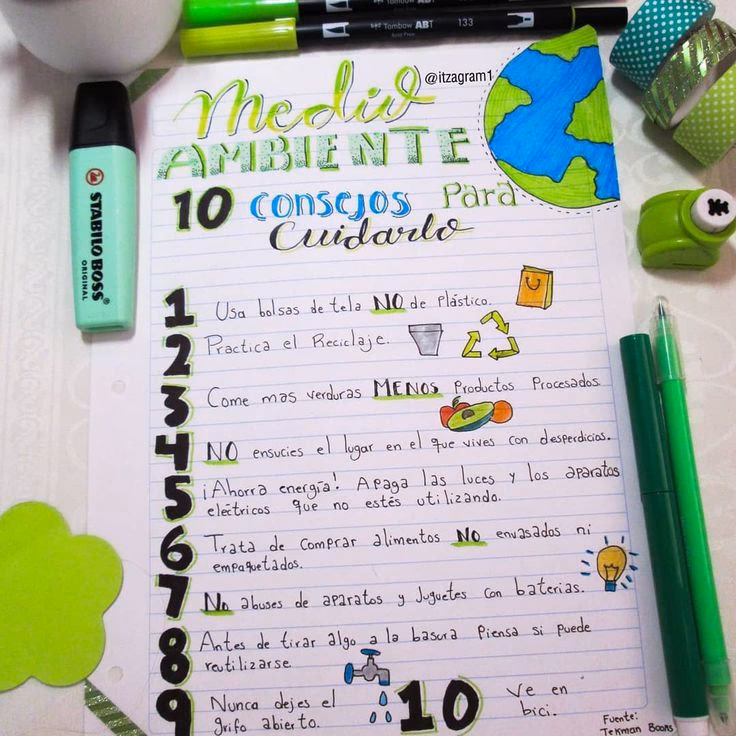 Tombow ABT
Tombow ABT 133
@itzagram1
Medio
AMBIENTE
10 Consejos Para
Cuidarlo
STABILO BOSS
ORIGINAL
1 Usa bolsas de tela NO de Plástico.
2 Practica el Reciclaje.
3 Come mas verduras MENOS Productos Procesados
4 NO ensucies el lugar en el que vives con desperdicios.
5 ¡Ahorra energía! Apaga las luces y los aparatos
eléctricos que no estés utilizando.
6 Trata de Comprar alimentos No envasados ni
empaquetados.
7 No abuses de aparatos y Juguetes con baterías.
8 Antes de tirar algo a la basura Piensa si puede
reutilizarse.
9 Nunca dejes el
grifo abierto.
10 Ve en
bici.
Fuente:
Tekman Books